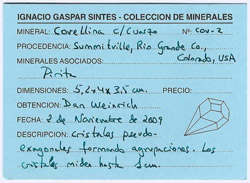 IGNACIO GASPAR SINTES - COLECCION DE MINERALES
MINERAL: Covellina c/ Cuarzo Nº COV-2
PROCEDENCIA: Summitville, Rio Grande Co.,
Colorado, USA
MINERALES ASOCIADOS:
Pirita
DIMENSIONES: 5,2 x 4 x 3,5 cm.
OBTENCION: Dan Weinrich
FECHA: 2 de Noviembre de 2009
DESCRIPCION: cristales pseudo-
exagonales formando agrupaciones. Los
cristales miden hasta 1 cm.